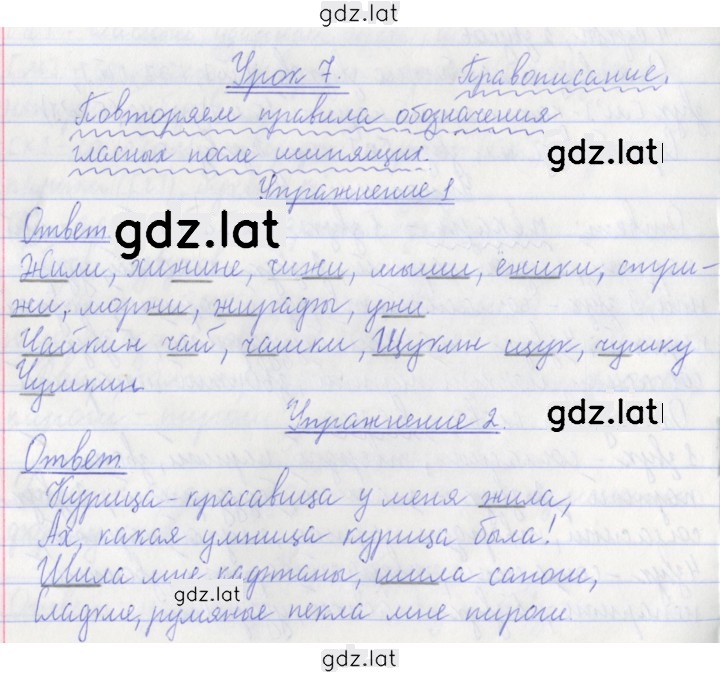 gdz.lat
Урок 7. Правописание.
Повторяем правила обозначения
гласных после шипящих. gdz.lat
Упражнение 1
Ответ gdz.lat
Жили, жинине, чижи, мыши, ежики, стри-
жи, моржи, жирафы, ужи.
Чайкин чай, чашки, Щукин щук, чушку
Чушкин
Упражнение 2. gdz.lat
Ответ
Курица-красавица у меня жила,
Ах какая умница курица была!
Шила мне кафтаны, шила сапоги,
gdz.lat
Сладкие, румяные пекла мне пироги
gdz.lat